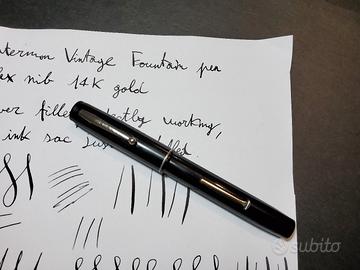 aterman Vintage Fountain pen
ex nib 14K gold
ver fille ectly working,
ink sac jus
subito